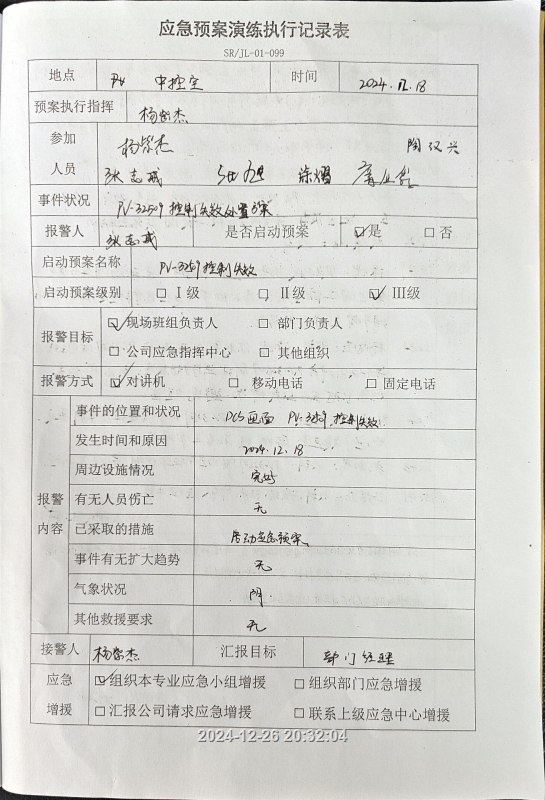 应急预案演练执行记录表
SR/JL-01-099
地点 中控室 时间 2024.12.18
预案执行指挥 杨紫杰
参加人员 杨紫杰 陶汉兴
张志威 徐熠
事件状况 PV-32509控制失效处置方案
报警人 张志威 是否启动预案 ☑是 □否
启动预案名称 PV-3259控制失效
启动预案级别 □Ⅰ级 □Ⅱ级 ☑Ⅲ级
报警目标 ☑现场班组负责人 □部门负责人
□公司应急指挥中心 □其他组织
报警方式 ☑对讲机 □移动电话 □固定电话
报警内容 事件的位置和状况 DCS画面 控制失效
发生时间和原因 2024.12.18
周边设施情况 完好
有无人员伤亡 无
已采取的措施 启动应急预案。
事件有无扩大趋势 无
气象状况 阴
其他救援要求 无
接警人 杨紫杰 汇报目标 部门经理
应急增援 ☑组织本专业应急小组增援 □组织部门应急增援
□汇报公司请求应急增援 □联系上级应急中心增援
2024-12-26 20:32:04